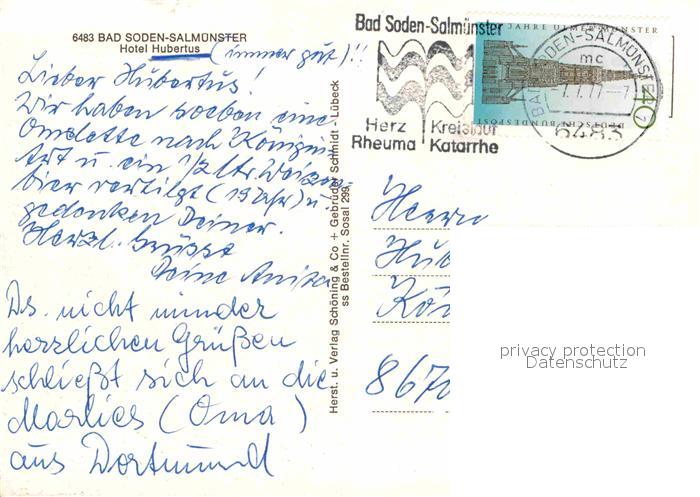 6483 BAD SODEN-SALMÜNSTER
Hotel Hubertus
(immer gut)!!
Lieber Hubertus!
Wir haben soeben eine
Omelette nach Königin
Art u. ein 1/2 ltr. Weizen-
bier vertilgt (19 Uhr) u.
gedenken Deiner.
Herzl. grüsst
Deine Anita
Ds. nicht minder
herzlichen Grüßen
schließt sich an die
Marlies (Oma)
aus Dortmund
Herst. u. Verlag Schöning & Co + Gebrüder Schmidt - Lübeck
ss Bestellnr. Sosal 299
Bad Soden-Salmünster
Herz
Rheuma
Kreislauf
Katarrhe
JAHRE ULMER MÜNSTER
40
DEUTSCHE BUNDESPOST
BAD SODEN-SALMÜNSTER 1
mc
-7.77.-7
6483
Herrn
Hub
Kön
8670
privacy protection
Datenschutz